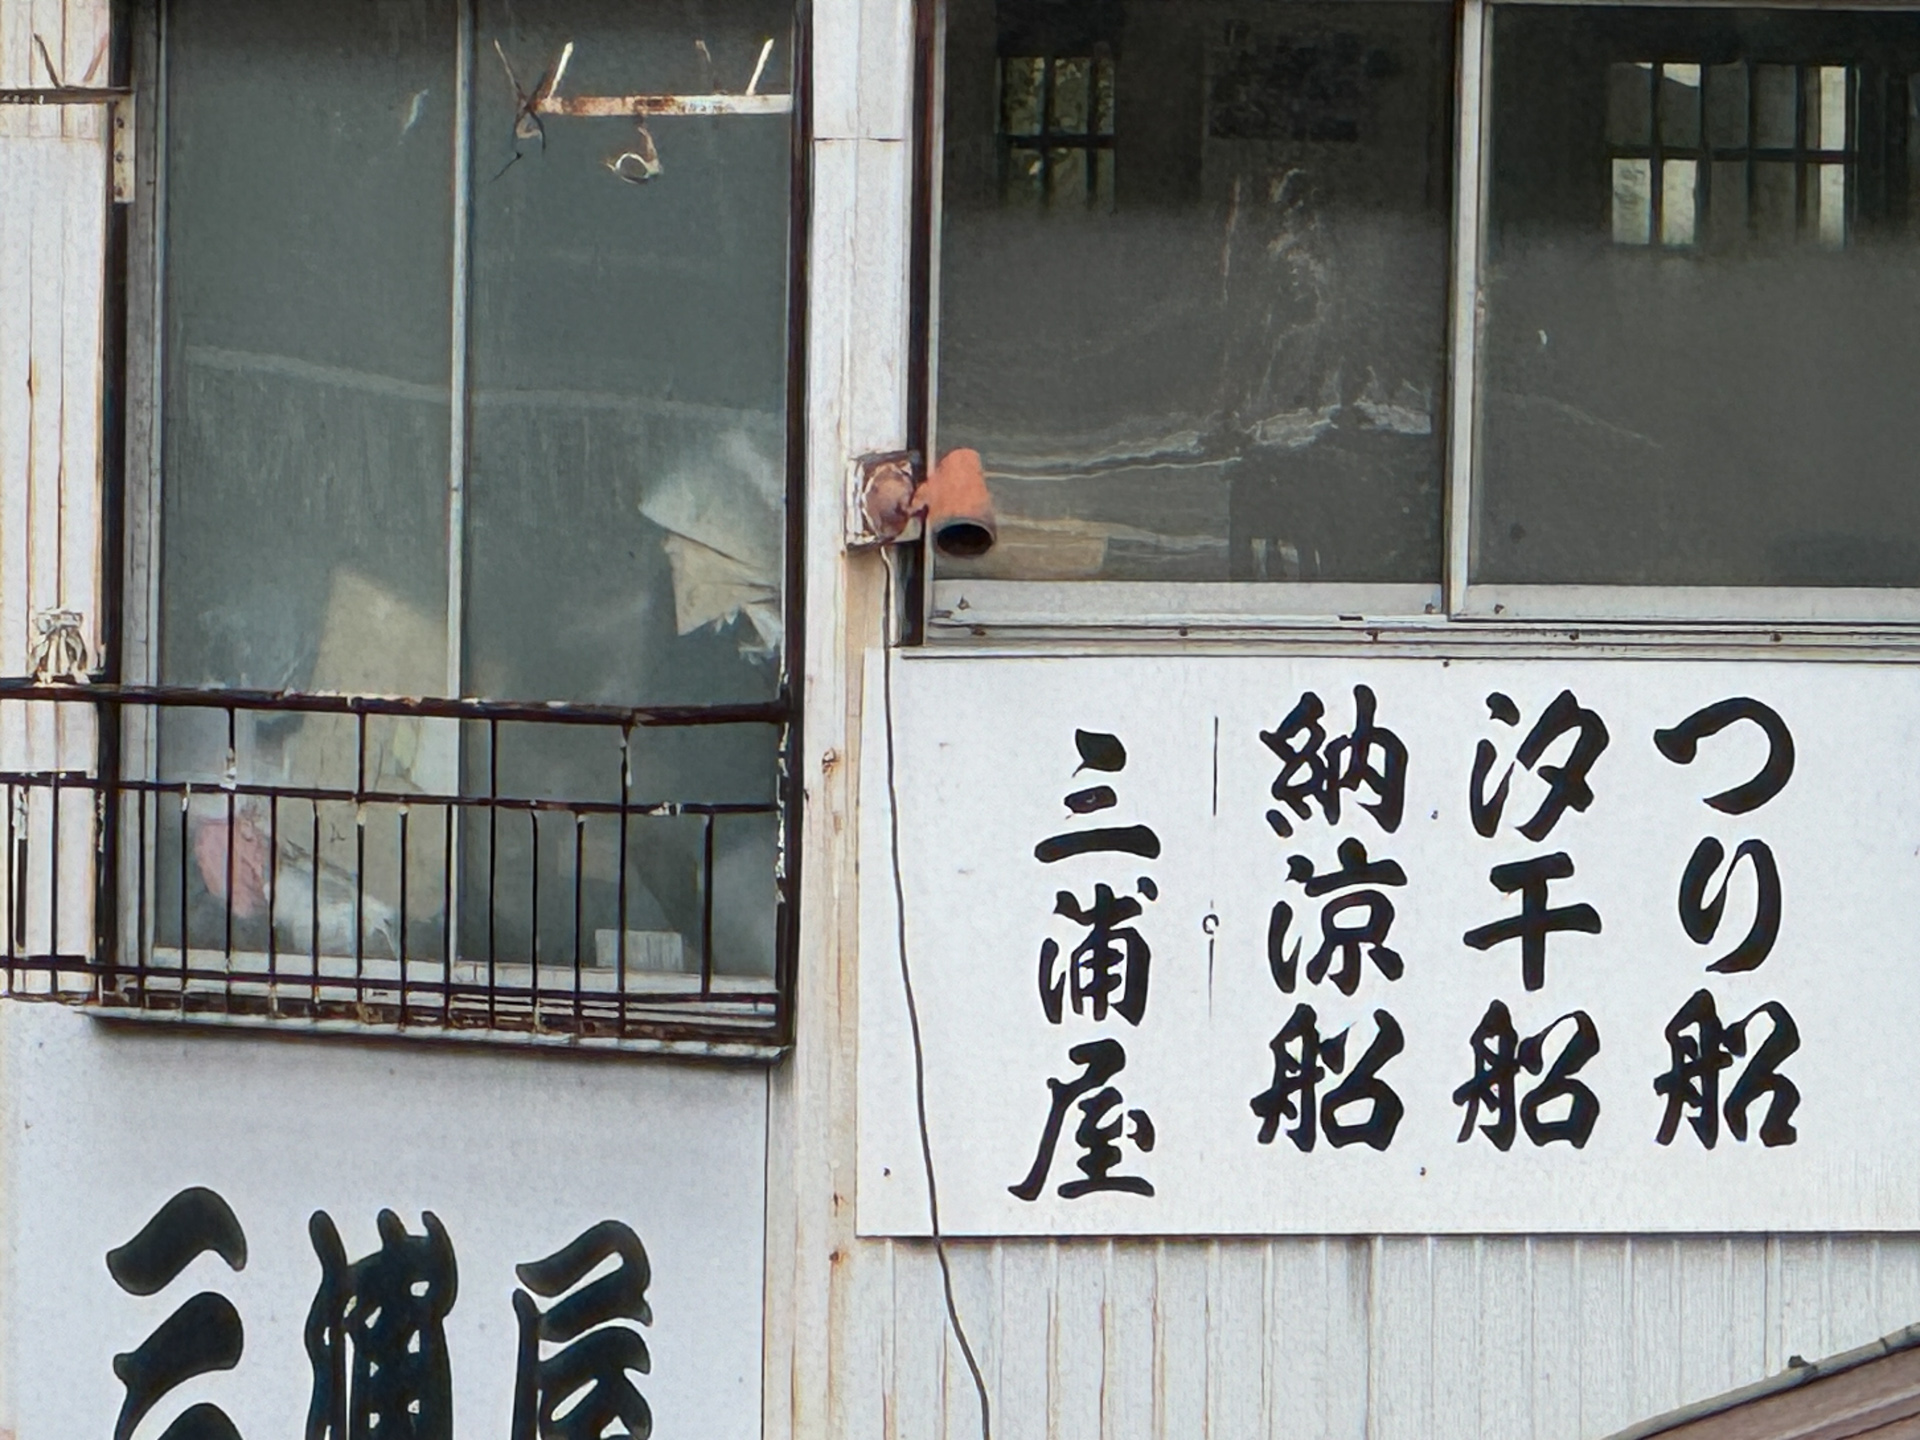 つり船
汐干船
納涼船
三浦屋
三浦屋